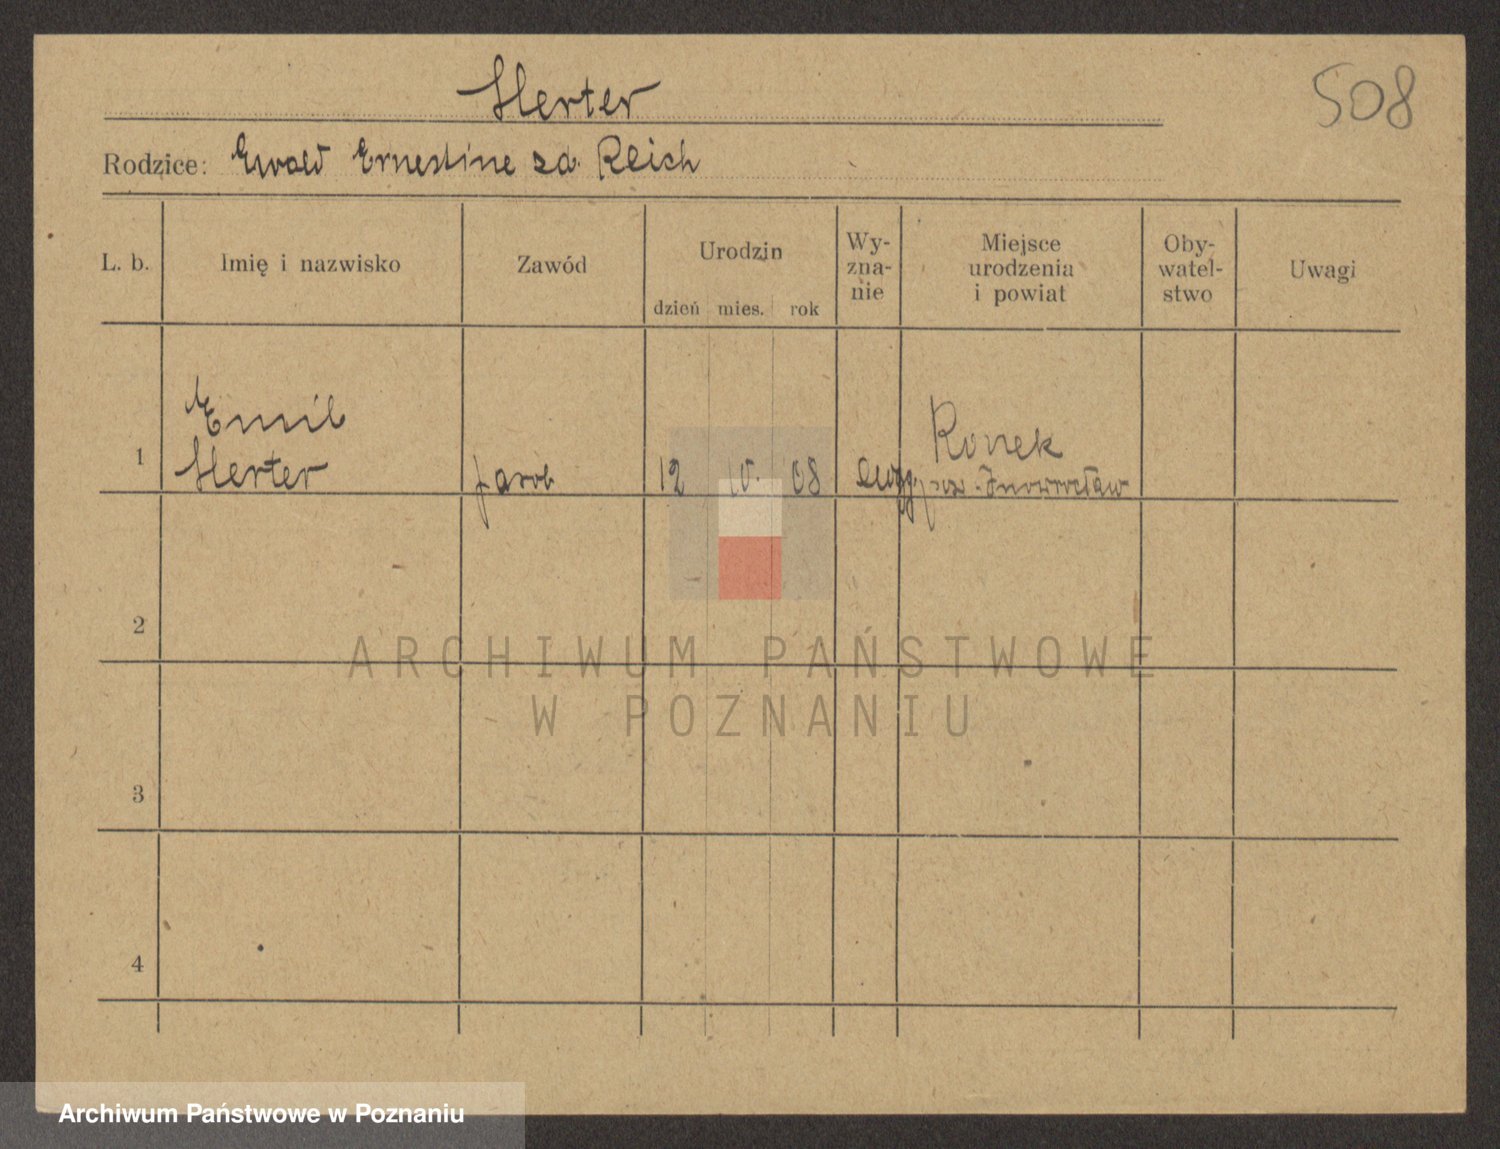 Herter
508
Rodzice: Ewald Ernestine zd. Reich
L. b.
Imię i nazwisko
Zawód
Urodzin
dzień mies. rok
Wy-
zna-
nie
Miejsce
urodzenia
i powiat
Oby-
watel-
stwo
Uwagi
Emil
1 Herter 12 08
Ronek
Inowrocław
2
ARCHIWUM PAŃSTWOWE
W POZNANIU
3
4
Archiwum Państwowe w Poznaniu